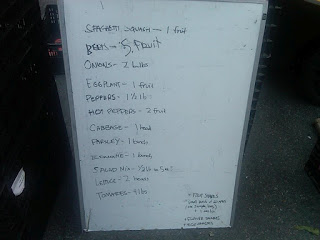 SPAGHETTI SQUASH - 1 fruit
BEETS - 5 FRUIT
ONIONS - 2 Lbs
EGGPLANT - 1 fruit
PEPPERS - 1 ½ lb
HOT PEPPERS - 2 fruit
CABBAGE - 1 head
PARSLEY - 1 bunch
1 bunch
SALAD MIX - ½ lb
LETTUCE - 2 heads
TOMATOES - 4 lbs